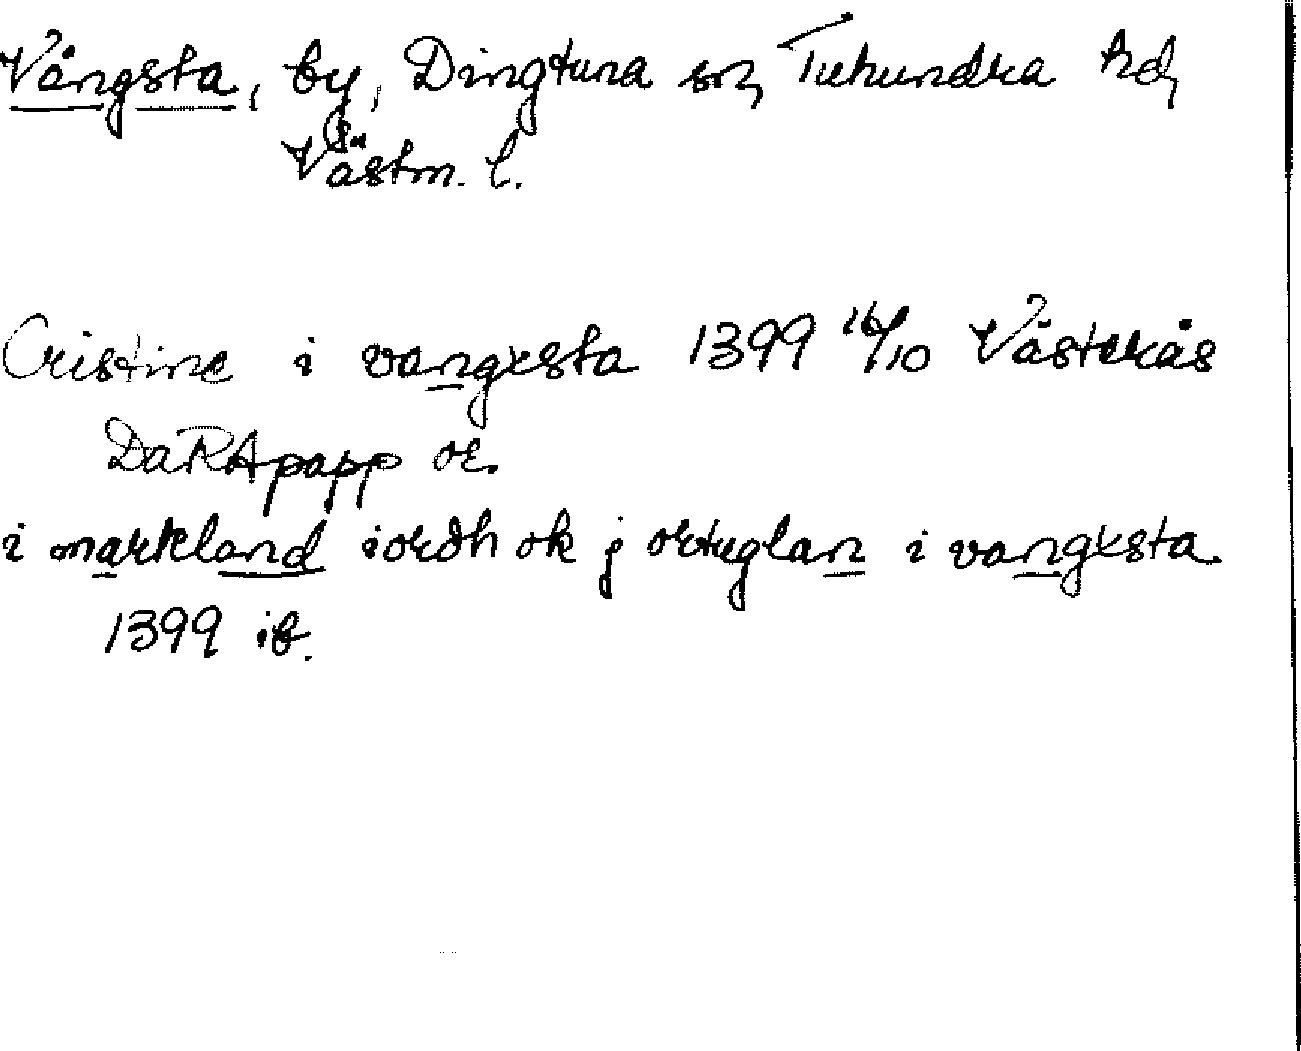 Vångsta, by, Dingtuna sn, Tuhundra hd,
Västm. l.
Cristine i vangxsta 1399 16/10 Västerås
DaRApapp or.
i markland iordh ok j ortuglan i vangxsta
1399 ib.